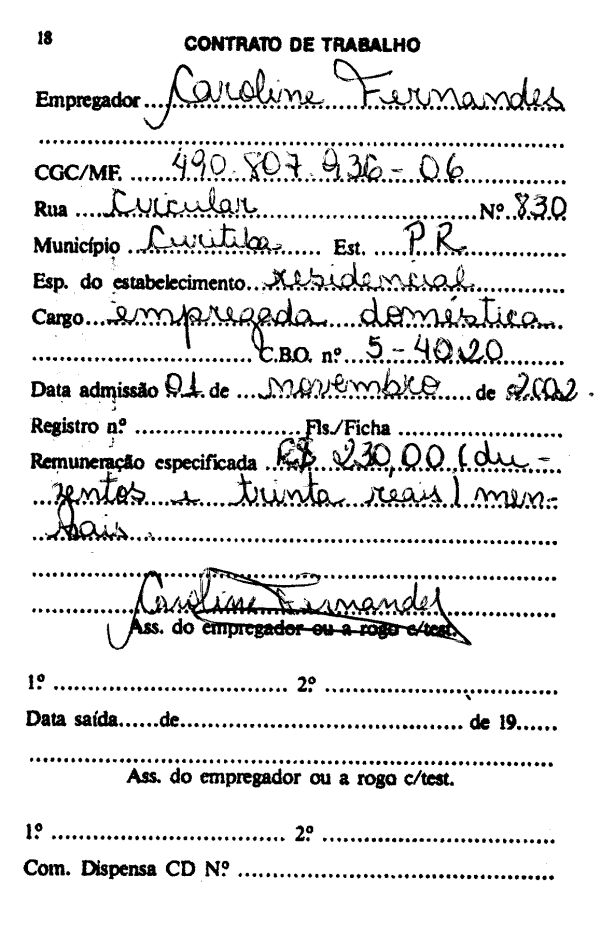 18
CONTRATO DE TRABALHO
Empregador Caroline Fernandes
CGC/MF. 490.807.936-06
Rua Circular Nº 830
Município Curitiba Est. PR
Esp. do estabelecimento residencial
Cargo empregada doméstica
C.B.O. nº 5-40.20
Data admissão 01 de novembro de 2002.
Registro nº Fls./Ficha
Remuneração especificada R$ 230,00 (du-
zentos e trinta reais) men-
sais.
Caroline Fernandes
Ass. do empregador ou a rogo c/test.
1º 2º
Data saída de de 19
Ass. do empregador ou a rogo c/test.
1º 2º
Com. Dispensa CD Nº